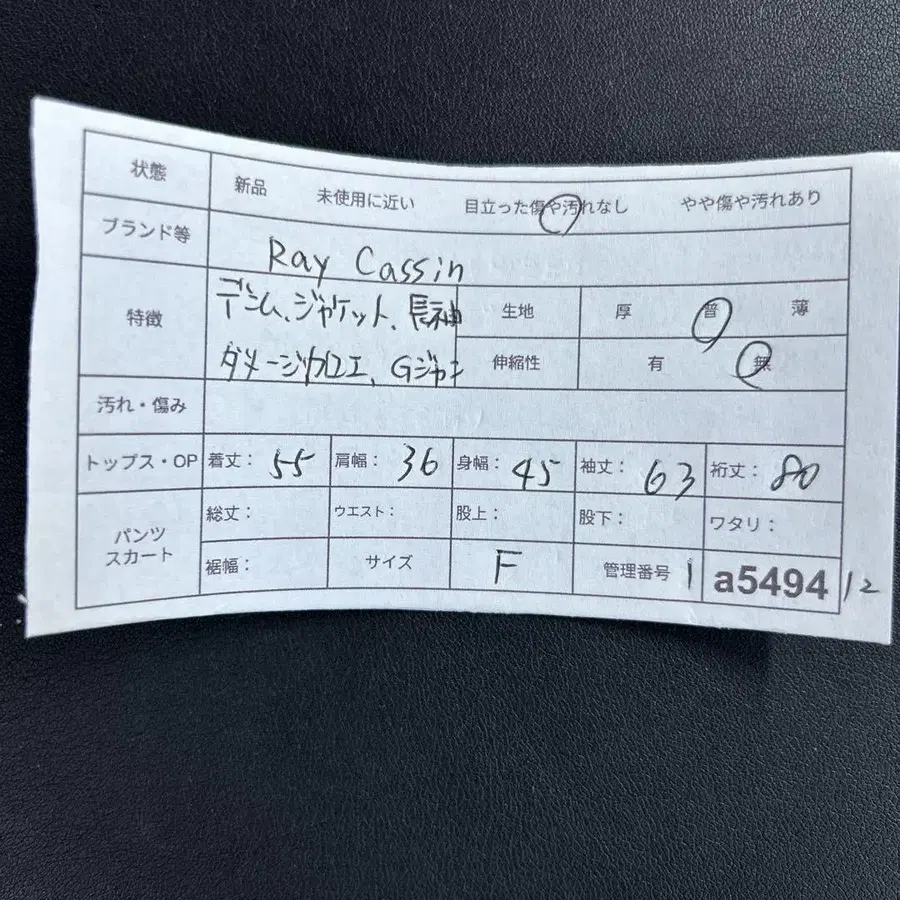 状態 新品 未使用に近い 目立った傷や汚れなし やや傷や汚れあり
ブランド等 Ray Cassin
特徴 デニム、ジャケット、長袖 生地 厚 普 薄
ダメージ加工、Gジャン 伸縮性 有 無
汚れ・傷み
トップス・OP 着丈： 55 肩幅： 36 身幅： 45 袖丈： 63 裄丈： 80
パンツ スカート 総丈： ウエスト： 股上： 股下： ワタリ：
裾幅： サイズ F 管理番号 1 a5494 12